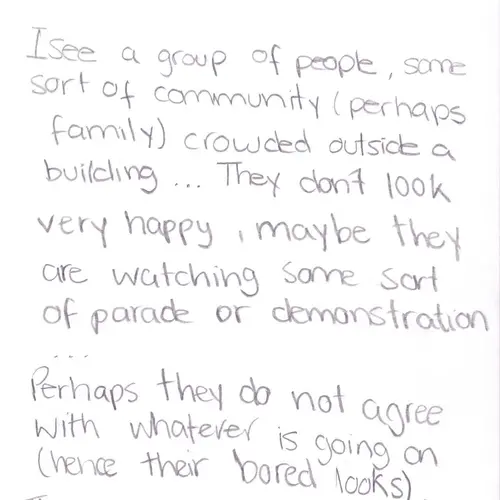 I see a group of people, some
sort of community (perhaps
family) crowded outside a
building ... They don't look
very happy, maybe they
are watching some sort
of parade or demonstration
...
Perhaps they do not agree
with whatever is going on
(hence their bored looks)